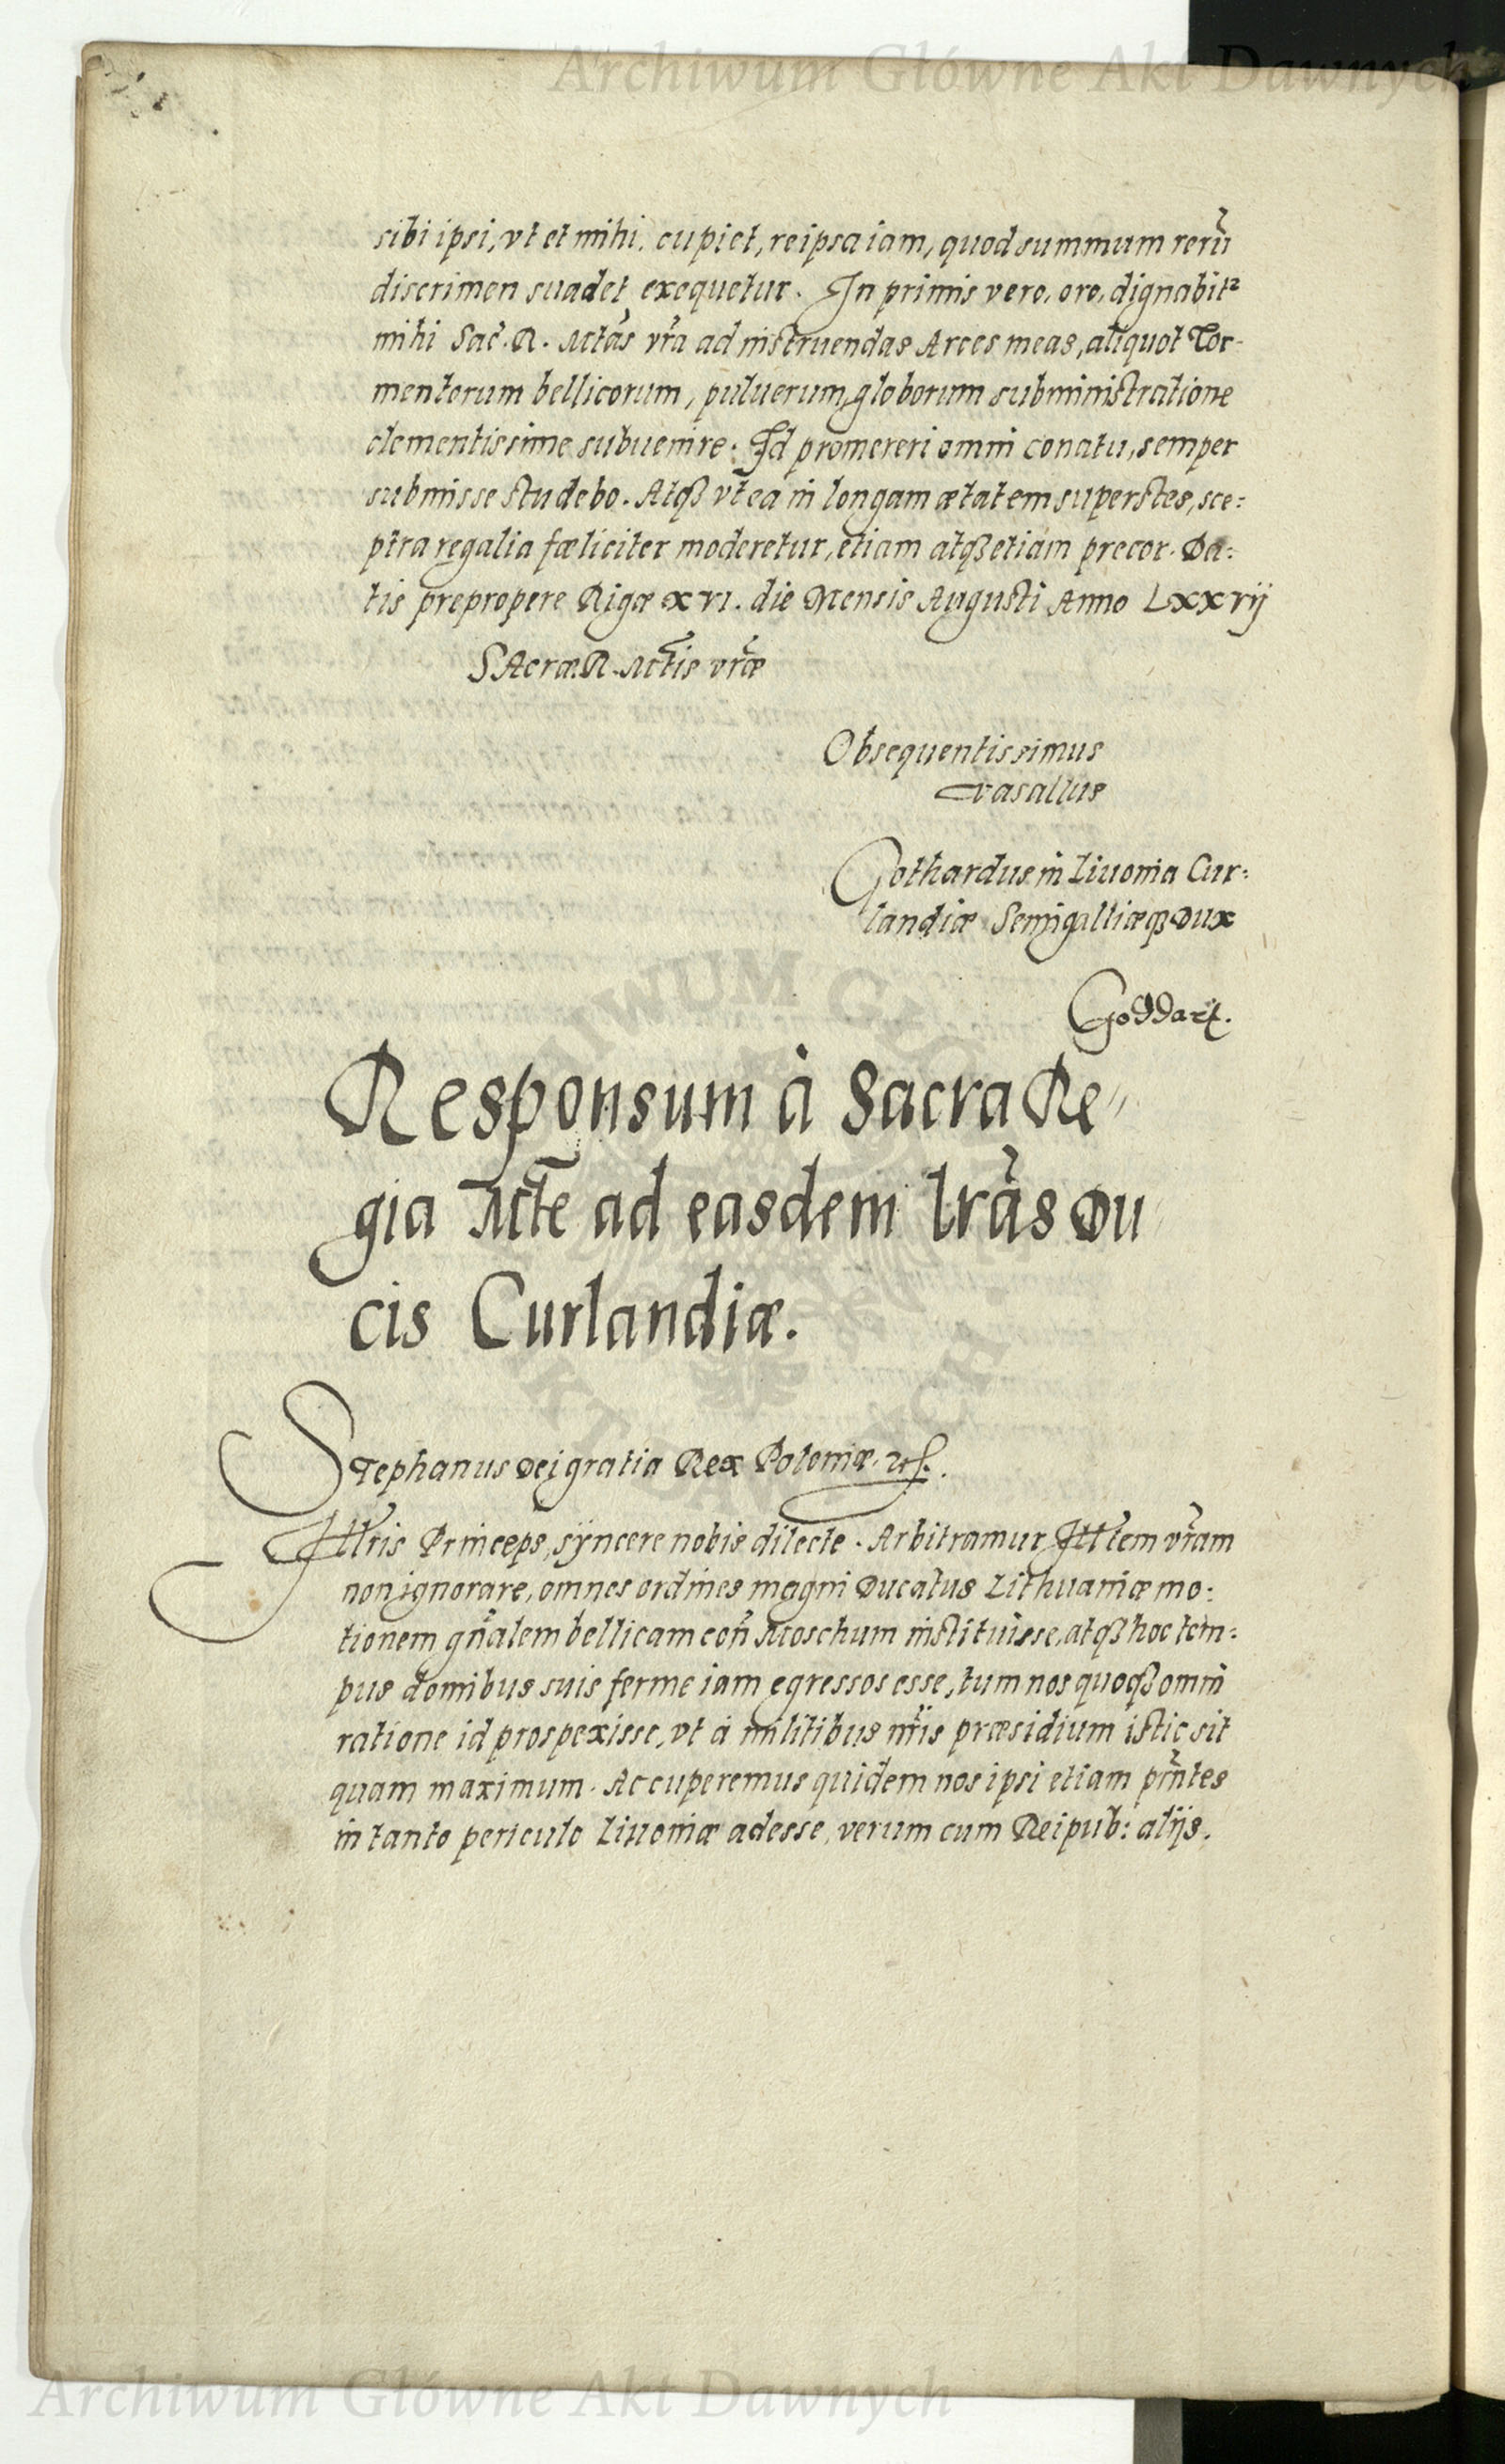 Archiwum Główne Akt Dawnych
sibi ipsi, vt et mihi, cupiet, reipsa iam, quod summum rerũ
discrimen suadet exequetur. In primis vero, oro, dignabitᷣ
mihi Sac̃. R. Mtas̃ vr̃a ad instruendas Arces meas, aliquot Tor-
mentorum bellicorum, puluerum, globorum subministratione
clementissime subuenire. Id promereri omni conatu, semper
submisse studebo. Atqꝫ vt ea in longam ætatem superstes, sce:
ptra regalia fæliciter moderetur, etiam atqꝫ etiam precor. Da:
tis prepropere Rigæ XVI. die Mensis Augusti Anno LXXVij
SAcræ. R. Mt̃is vr̃æ
Obsequentissimus
vasallus
Gothardus in Liuonia Cur:
landiæ Semigalliæqꝫ Dux
Goddart.
Responsum à Sacra Re"
gia Mt̃e ad easdem lr̃as Du
cis Curlandiæ.
STephanus Dei gratia Rex Poloniæ. etc.
Illr̃is Princeps, syncere nobis dilecte. Arbitramur Illt̃em vr̃am
non ignorare, omnes ordines magni Ducatus Lithuaniæ mo:
tionem gñalem bellicam coñ Moschum instituisse, atqꝫ hoc tem:
pus domibus suis ferme iam egressos esse, tum nos quoqꝫ omni
ratione id prospexisse, vt à militibus nr̃is præsidium istic sit
quam maximum. Ac cuperemus quidem nos ipsi etiam pñtes
in tanto periculo Liuoniæ adesse, verum cum Reipub: alijs.
Archiwum Główne Akt Dawnych